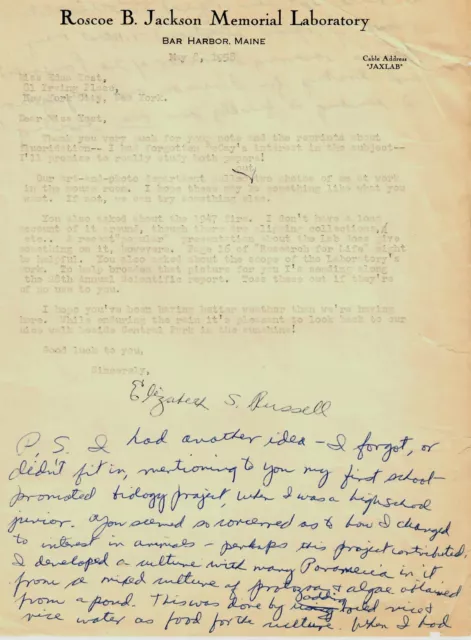 Roscoe B. Jackson Memorial Laboratory
Bar Harbor, Maine
Cable Address
"JAXLAB"
May 1958
Miss East,
21 Irving Place,
New York City, New York.
Dear Miss East,
Thank you very much for your note and the reprints about
I had forgotten interest in the subject--
I'll promise to really study both papers!
Our art-and-photo department two photos of me at work
in the mouse room. I hope these may be something like what you
want. If not, we can try something else.
You also asked about the 1947 fire. I don't have a
account of it around, though there are clipping collections,
etc.. presentation about the Lab
something on it, however. Page 15 of "Research for Life" might
be helpful. You also asked about the scope of the Laboratory's
work. To help broaden that picture for you I'm sending along
the 28th Annual Scientific report. Toss these out if they're
of no use to you.
I hope you've been having better weather than we're having
here. While enduring the rain it's pleasant to look back to our
nice walk beside Central Park in the sunshine!
Good luck to you,
Sincerely,
Elizabeth S. Russell
P.S. I had another idea - I forgot, or
didn't fit in, mentioning to you my first school-
promoted biology project, when I was a highschool
junior. You seemed so concerned as to how I changed
to interest in animals - perhaps this project contributed.
I developed a culture with many Paramecia in it
from a mixed culture of protozoa & algae obtained
from a pond. This was done by adding boiled rice &
rice water as food for the culture. When I had